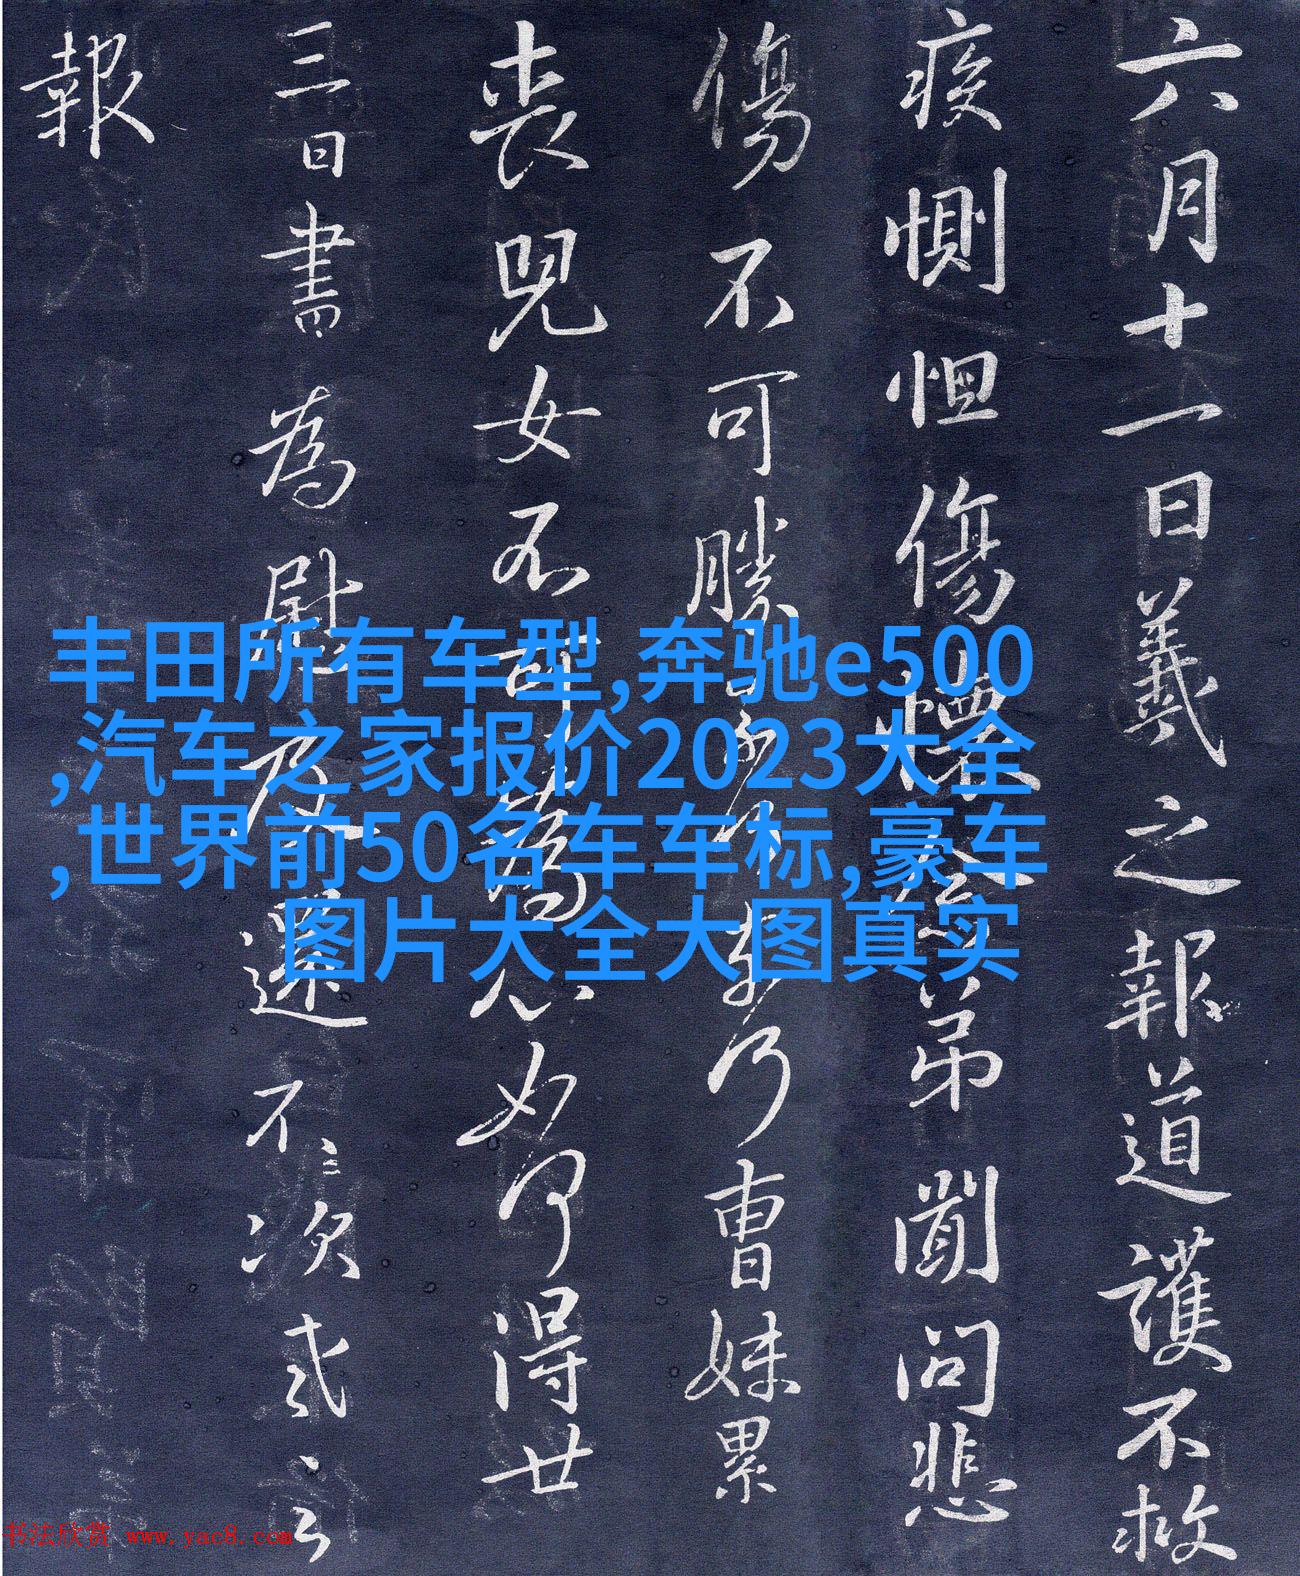 六月十一日羲之報道護不救
疾惻怛傷懷念弟聞問悲
傷不可勝乃曹妹累
喪兒女不可為心如何得廿
三日書為慰及遠不次羲之
報
丰田所有车型,奔驰e500
,汽车之家报价2023大全
,世界前50名车车标,豪车
图片大全大图真实
书法欣赏 www.yac8.com